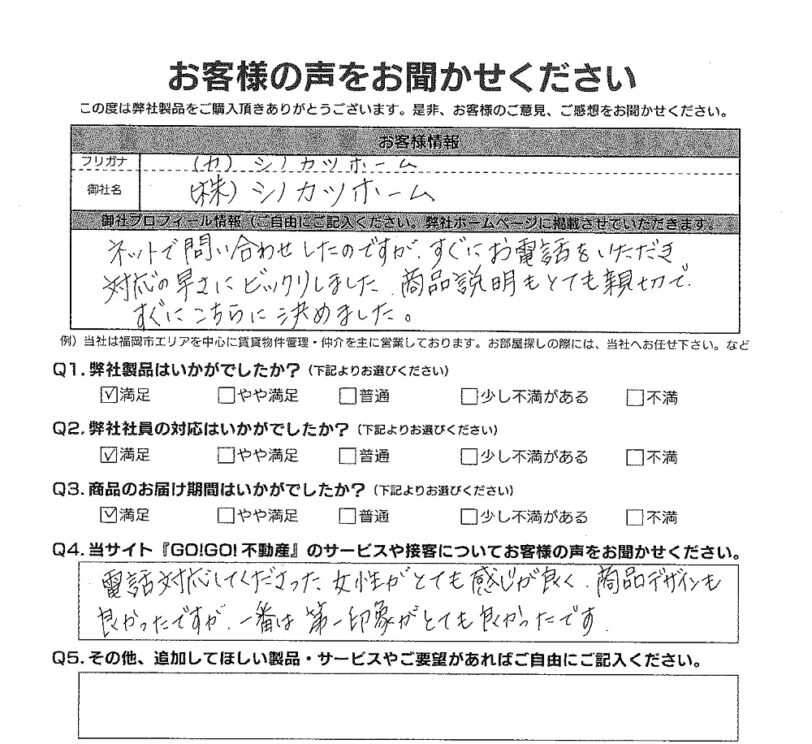 お客様の声をお聞かせください
この度は弊社製品をご購入頂きありがとうございます。是非、お客様のご意見、ご感想をお聞かせください。
お客様情報
フリガナ (カ) シノカツホーム
御社名 (株) シノカツホーム
御社プロフィール情報（ご自由にご記入ください。弊社ホームページに掲載させていただきます。
ネットで問い合わせしたのですが、すぐにお電話をいただき
対応の早さにビックリしました。商品説明もとても親切で
すぐにこちらに決めました。
例）当社は福岡市エリアを中心に賃貸物件管理・仲介を主に営業しております。お部屋探しの際には、当社へお任せ下さい。など
Q1. 弊社製品はいかがでしたか？（下記よりお選びください）
☑満足 □やや満足 □普通 □少し不満がある □不満
Q2. 弊社社員の対応はいかがでしたか？（下記よりお選びください）
☑満足 □やや満足 □普通 □少し不満がある □不満
Q3. 商品のお届け期間はいかがでしたか？（下記よりお選びください）
☑満足 □やや満足 □普通 □少し不満がある □不満
Q4. 当サイト『GO!GO! 不動産』のサービスや接客についてお客様の声をお聞かせください。
電話対応してくださった、女性がとても感じが良く、商品デザインも
良かったですが、一番は第一印象がとても良かったです.
Q5. その他、追加してほしい製品・サービスやご要望があればご自由にご記入ください。